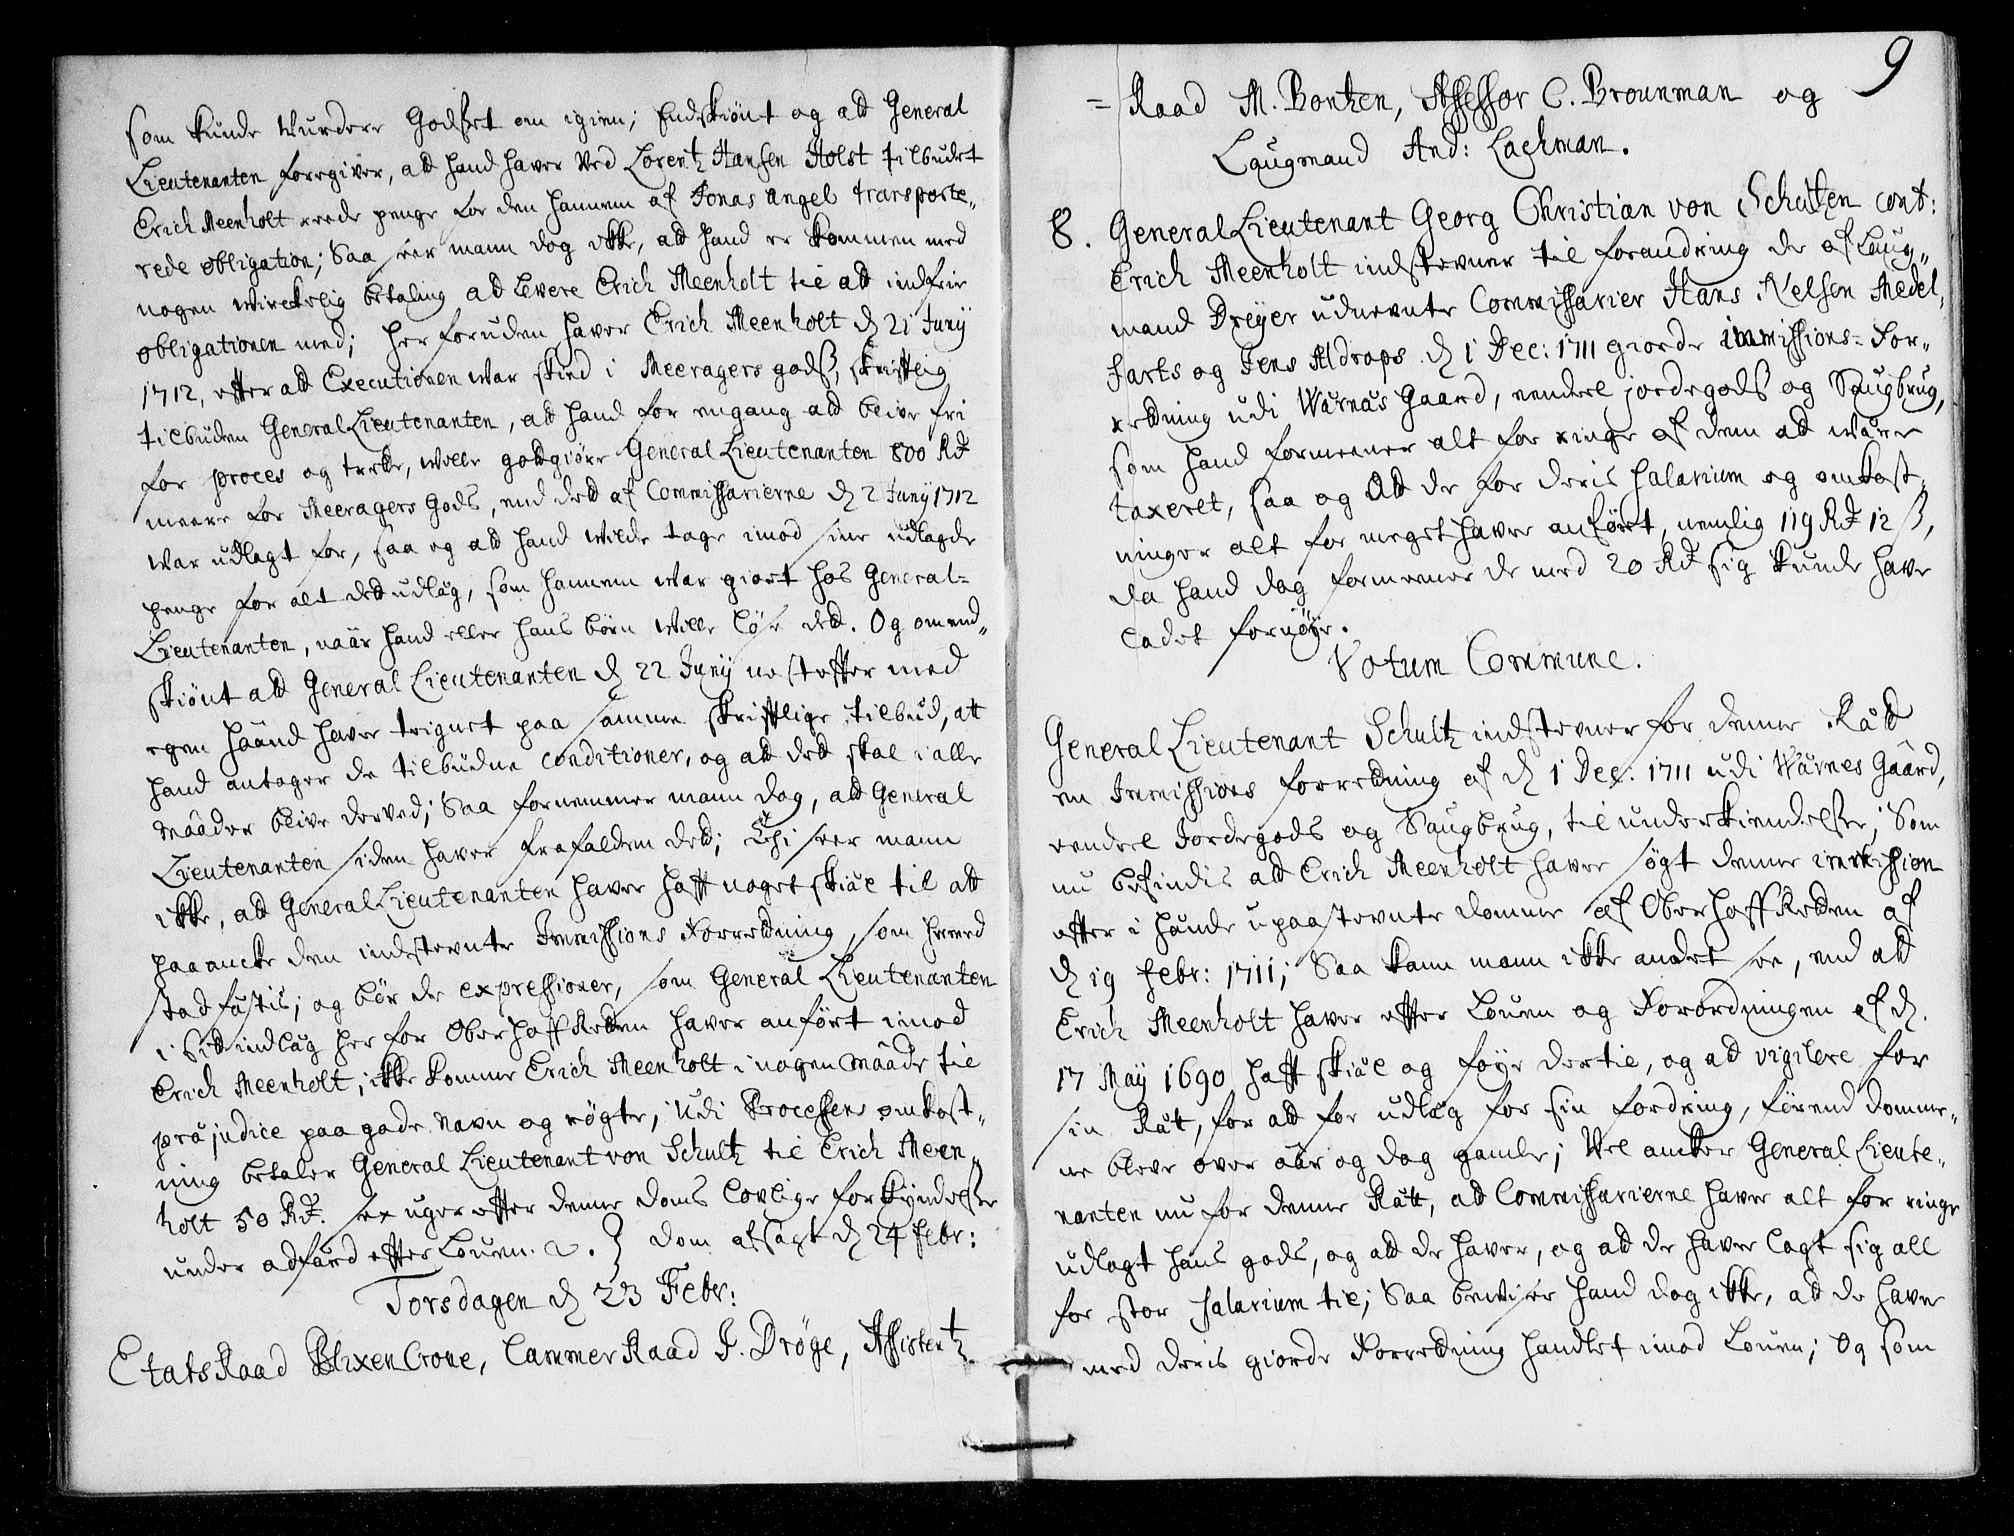 som kunde Wurdere Godset om igien; Endskiönt og att General
Lieutenanten foregiver, att hand haver Ved Lorentz Hansen Holst tilbudet
Erich Meenholt rede penge for den hannem af Jonas Angel transporte„
rede obligation; Saa seer mann dog ikke, att hand er kommen med
nogen Wirckelig betaling at levere Erich Meenholt til att indfrie
obligationen med; her foruden haver Erich Meenholt d 21 Junÿ
1712, efter att Executionen War skeed i Meeragers gods, skriftlig
tilbuden General Lieutenanten, att hand for engang att blive fri
for proces og trette, Wille godtgiöre General Lieutenanten 800 Rd
meere for Meeragers Gods, end det af Commissarierne d 2 Junÿ 1712
War udlagt for, saa og att hand Wilde tage imod sine udlagde
penge for alt det udlæg, som hannem War giort hos General=
Lieutenanten, naar hand eller hans börn Wille löse det. Og omend„
skiönt att General Lieutenanten d 22 Junÿ nestefter med
egen haand haver tegnet paa samme skriftlige tilbud, att
hand antager de tilbudne conditioner, og att det skal i alle
maader blive derved; Saa fornemmer mann dog, att General
Lieutenanten siden haver frafalden det; Thi seer mann
ikke, att General Lieutenanten haver haft noget skiæl til att
paaancke den indstevnte Immissions Forretning, som hermed
stadfæstis; og bör de expressioner, som General Lieutenanten
i sit indlæg her for Oberhoffretten haver anfört imod
Erich Meenholt, ikke komme Erich Meenholt i nogen maade til
præjudice paa gode navn og rögte; Udi Processens omkost„
ning betaler General Lieutenant von Schultz til Erich Meen„
holt 50 Rd. sex uger efter denne doms lovlige forkyndelse
under adfærd efter Louen. Dom afsagt d 24 febr:
Torsdagen d 23 Febr:
Etats Raad Blixencrone, Cammer Raad J. Dröge, Assistentz
9
= Raad M. Bontzen, Assessor C. Brounman og
Laugmand And: Lachman.
8. General Lieutenant Georg Christian von Schultzen cont:
Erich Meenholt indstevner til forandring de af Laug„
mand Dreÿer udnevnte Commissarier Hans Nelsen Medel„
farts og Jens Aldrops d 1 Dec: 1711 giorde immissions= For„
retning udi Wærnæs Gaard, eendeel jordegods og Saugbrug,
som hand formeener alt for ringe af dem att være
taxeret, saa og att de for deris Salarium og omkost„
ninger alt for meget haver anfört, nemlig 119 Rd 12 ß,
da hand dog formeener de med 20 Rd sig kunde have
ladet fornöÿe.
Votum Commune.
General Lieutenant Schultz indstevner for denne Rætt
en Immissions forretning af d 1 Dec: 1711 udi Wærnes Gaard,
eendeel Jordegods og Saugbrug, til underkiendelse; Som
nu befindis att Erich Meenholt haver sögt denne immission
efter i hænde upaastevnte domme af Oberhoffretten af
d 19 Febr: 1711; Saa kann mann ikke andet see, end att
Erich Meenholt haver efter Louen og Forordningen af d.
17 Maÿ 1690 haft skiæl og föÿe dertil, og att vigilere for
sin Rætt, for att faa udlæg for sin fordring, förend domme„
ne bleve over aar og dag gamle; Vel ancker General Lieute„
nanten nu for denne Rætt, att Commissarierne haver alt for ringe
udlagt hans gods, og att de haver, og att de haver lagt sig all
for stor Salarium til; Saa beviser hand dog ikke, att de haver
med deris giorde Forretning handlet imod Louen; Og som